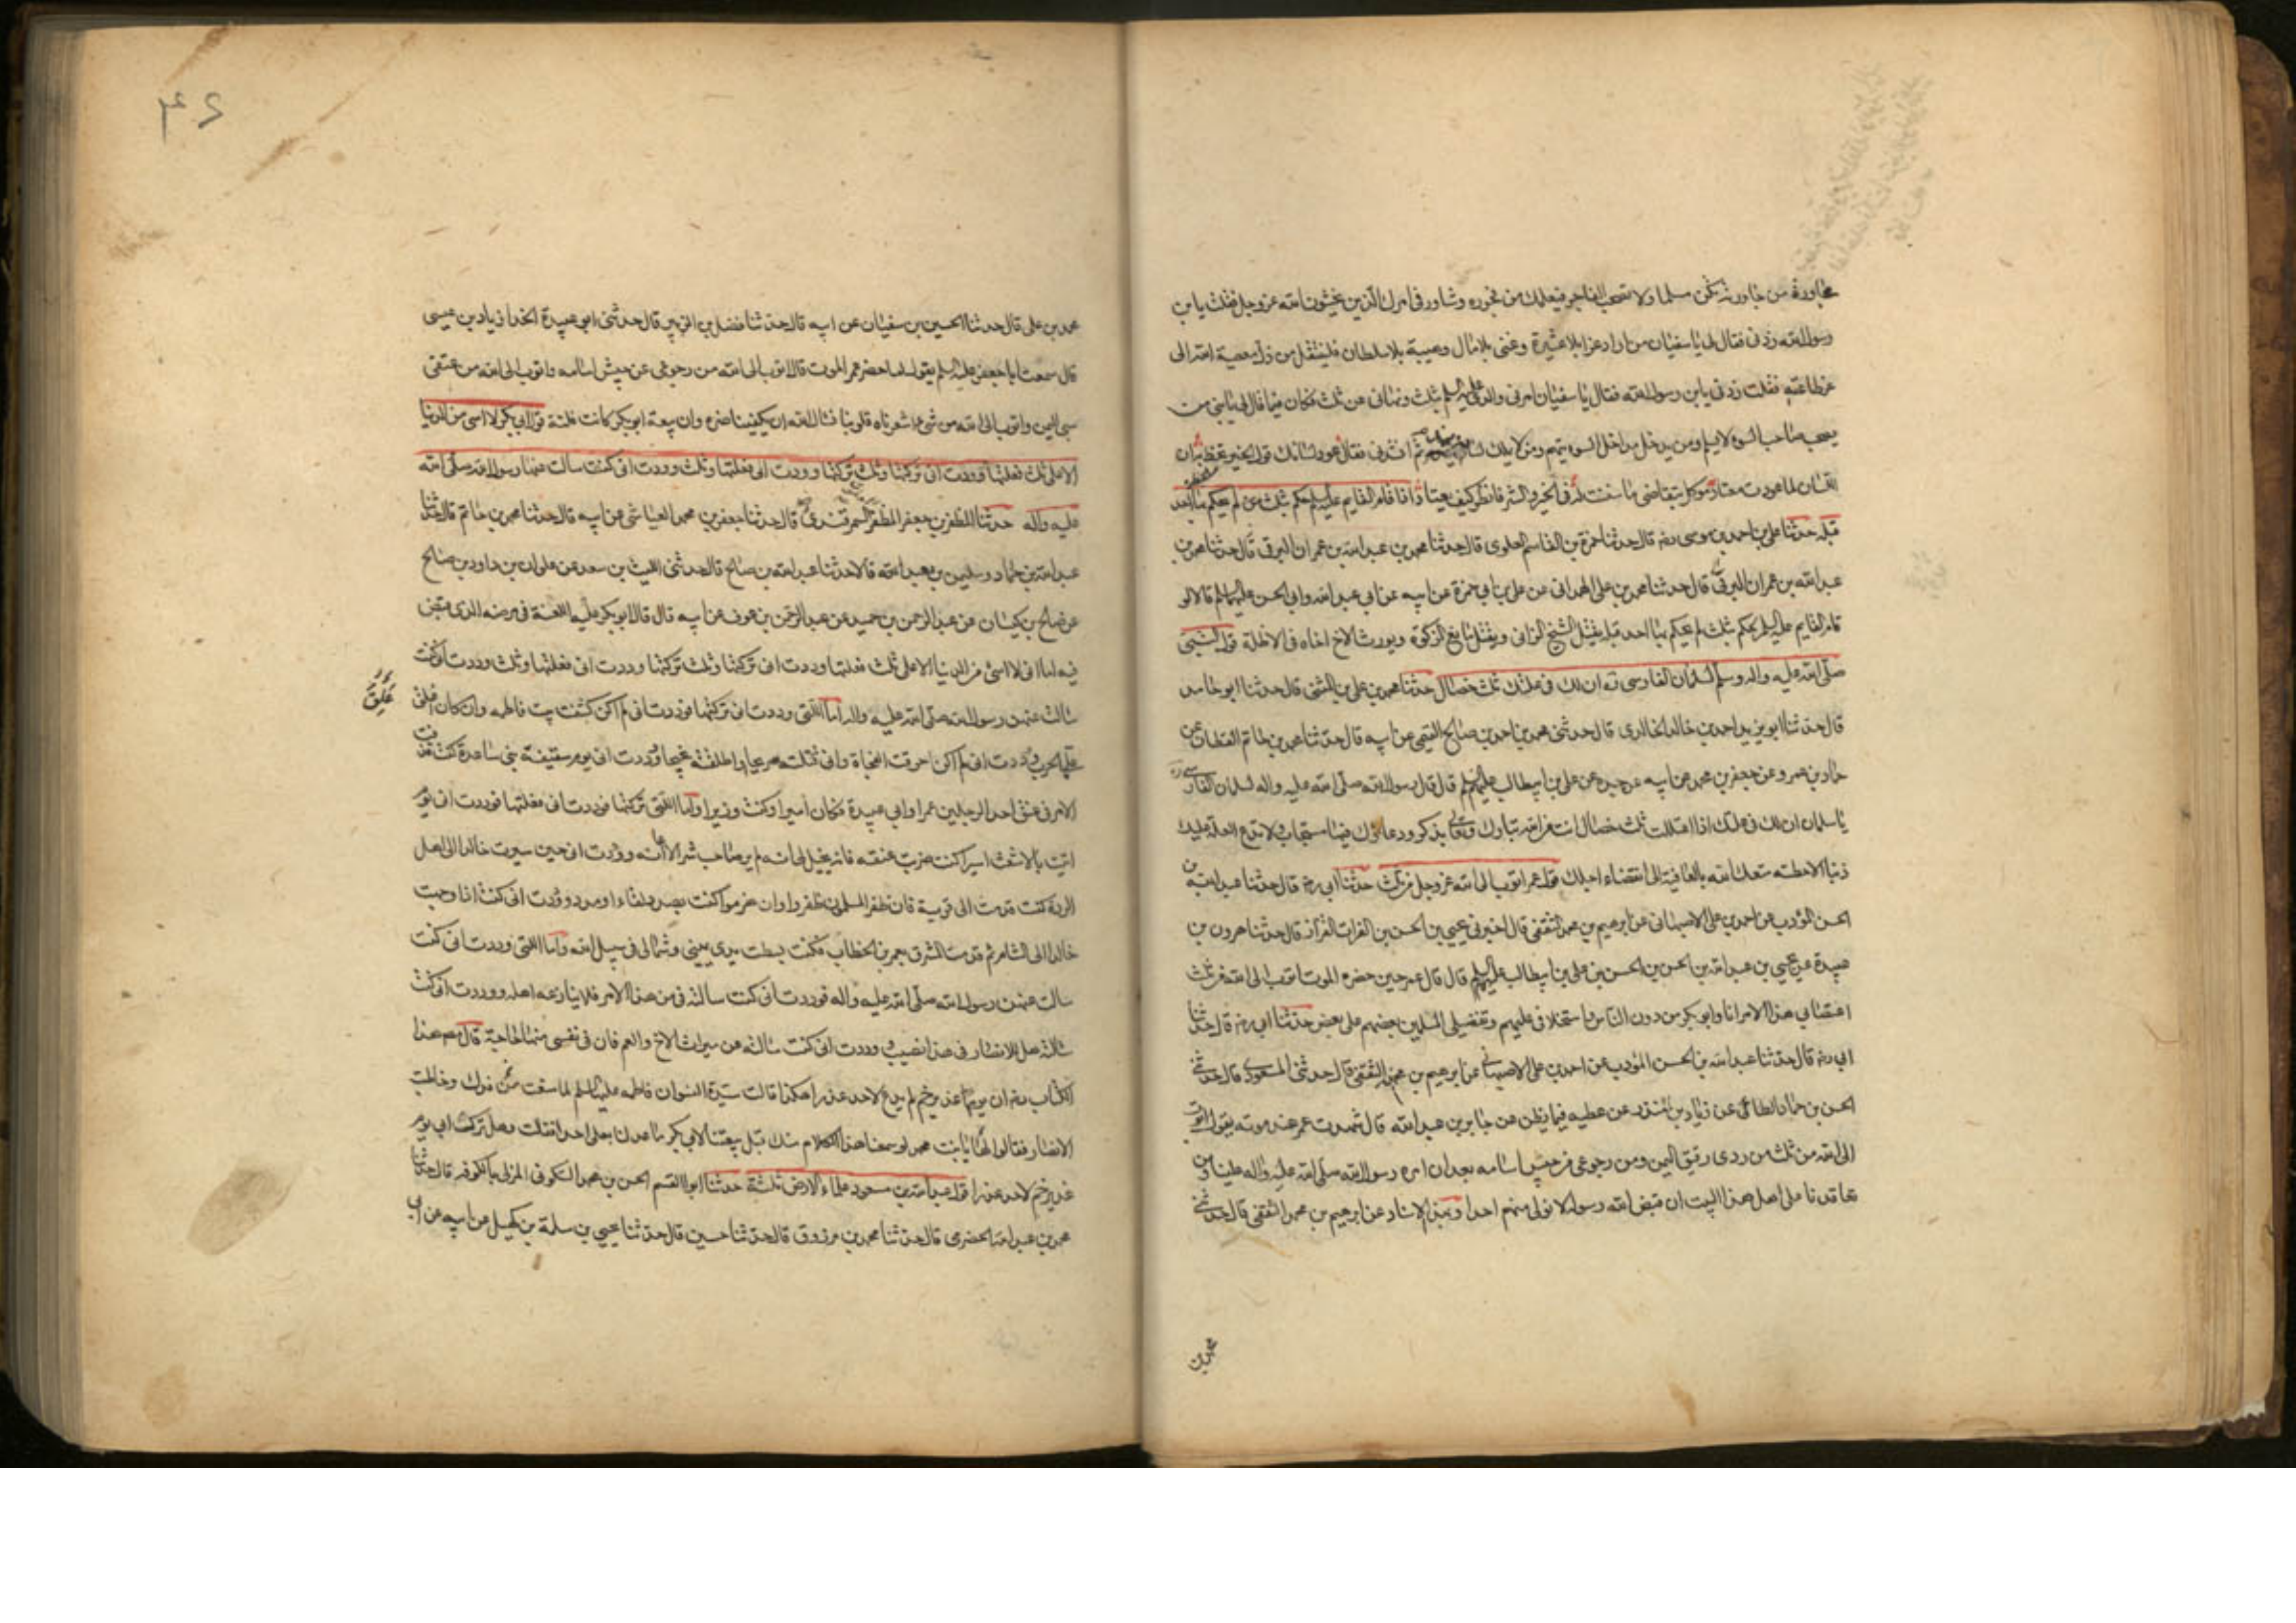 مجاورة من جاورته تكن مسلما ولا تصحب الفاجر فيعلمك من فجوره وشاور في امرك الذين يخشون الله عز وجل فقلت يا بن
رسول الله زدني فقال لي يا سفيان من اراد عزا بلا عشيرة وغنى بلا مال وهيبة بلا سلطان فلينتقل من ذل معصية الله الى
عز طاعته فقلت زدني يا بن رسول الله فقال يا سفيان امرني والدي عليه السلم بثلث ونهاني عن ثلث فكان فيما قال لي يا بني من
يصحب صاحب السوء لا يسلم ومن يدخل مداخل السوء يتهم ومن لا يملك لسانه يندم ثم انشدني فقال عود لسانك قول الخير تحظ به ان
اللسان لما عودت معتاد موكل بتقاضي ما سننت له في الخير والشر فانظر كيف تعتاد اذا قام القايم عليه السلم حكم بثلث لم يحكم بها احد
قبله حدثنا علي بن احمد بن موسى رضه قال حدثنا حمزة بن القاسم العلوي قال حدثنا محمد بن عبد الله بن عمران البرقي قال حدثنا محمد بن
عبد الله بن عمران البرقي قال حدثنا محمد بن علي الهمداني عن علي بن ابي حمزة عن ابيه عن ابي عبد الله وابي الحسن عليهما السلم قالا لو
قام القايم عليه السلم لحكم بثلث لم يحكم بها احد قبله يقتل الشيخ الزاني ويقتل مانع الزكوة ويورث الاخ اخاه في الاظلة قول النبي
صلى الله عليه واله وسلم لسلمان الفارسي ره ان لك في علتك ثلث خصال حدثنا محمد بن علي بن الشاه قال حدثنا ابو حامد
قال حدثنا ابو يزيد احمد بن خالد الخالدي قال حدثني محمد بن احمد بن صالح التميمي عن ابيه قال حدثنا محمد بن حاتم القطان عن
حماد بن عمرو عن جعفر بن محمد عن ابيه عن جده عن علي بن ابيطالب عليهم السلم قال قال رسول الله صلى الله عليه واله لسلمان الفارسي ره
يا سلمان ان لك في علتك اذا اعتللت ثلث خصال انت من الله تبارك وتعالى بذكر ودعاؤك فيها مستجاب ولا تدع العلة عليك
ذنبا الا حطته متعك الله بالعافية الى انقضاء اجلك قول عمر اتوب الى الله عز وجل من ثلث حدثنا ابي رضه قال حدثنا عبد الله بن
الحسن المؤدب عن احمد بن علي الاصبهاني عن ابرهيم بن محمد الثقفي قال اخبرني يحيى بن الحسن بن الفرات القزاز قال حدثنا هرون بن
عبيدة عن يحيى بن عبد الله بن الحسن بن الحسن بن علي بن ابيطالب عليهم السلم قال قال عمر حين حضره الموت اتوب الى الله من ثلث
اغتصابي هذا الامر انا وابو بكر من دون الناس واستخلافي عليهم وتفضيلي المسلمين بعضهم على بعض حدثنا ابي رضه قال حدثنا
ابي رضه قال حدثنا عبد الله بن الحسن المؤدب عن احمد بن علي الاصبهاني عن ابرهيم بن محمد الثقفي قال حدثني المسعودي قال حدثني
الحسن بن حماد الطائي عن زياد بن المنذر عن عطيه فيما يظن عن جابر بن عبد الله قال شهدت عمر عند موته يقول اتوب
الى الله من ثلث من ردي رقيق اليمن ومن رجوعي من جيش اسامه بعد ان امره رسول الله صلى الله عليه واله علينا ومن
تعاقدنا على اهل هذا البيت ان قبض الله رسوله لا نولي منهم احدا وبهذا الاسناد عن ابرهيم بن محمد الثقفي قال حدثني
محمد بن
۴۶
محمد بن علي قال حدثنا الحسين بن سفيان عن ابيه قال حدثنا فضل بن الزبير قال حدثني ابو عبيدة الحذا زياد بن عيسى
قال سمعت ابا جعفر عليه السلم يقول لما حضر عمر الموت قال اتوب الى الله من رجوعي عن جيش اسامه واتوب الى الله من عتقي
سبي اليمن واتوب الى الله من شيء اشعرناه قلوبنا نسال الله ان يكفينا ضره وان بيعة ابو بكر كانت فلتة قول ابي بكر لا اسى من الدنيا
الا على ثلث فعلتها ووددت اني تركتها وثلث تركتها ووددت اني فعلتها وثلث ووددت اني كنت سالت عنها رسول الله صلى الله
عليه واله حدثنا المظفر بن جعفر المظفر السمرقندي قال حدثنا جعفر بن محمد العياشي عن ابيه قال حدثنا محمد بن حاتم قال حدثنا
عبد الله بن حماد وسليمن بن معبد قالا حدثنا عبد الله بن صالح قال حدثني الليث بن سعد عن علوان بن داود بن صالح
عن صالح بن كيسان عن عبد الرحمن بن حميد عن عبد الرحمن بن عوف عن ابيه قال قال ابو بكر عليه اللعنة في مرضه الذي قبض
فيه اما اني لا اسى من الدنيا الا على ثلث فعلتها وددت اني تركتها وثلث تركتها وددت اني فعلتها وثلث وددت اني كنت
سالت عنهن رسول الله صلى الله عليه واله اما اللتي وددت اني تركتها فوددت اني لم اكن كشفت بيت فاطمه وان كان اغلق
علي الحرب ووددت اني لم اكن احرقت الفجاة واني قتلته سريحا او اطلقته نجيحا ووددت اني يوم سقيفة بني ساعدة كنت قذفت
الامر في عنق احد الرجلين عمر او ابي عبيدة فكان اميرا وكنت وزيرا واما اللتي تركتها فوددت اني فعلتها فوددت اني يوم
اتيت بالاشعث اسيرا كنت ضربت عنقه فانه يخيل لي انه لم ير صاحب شر الا اعانه ووددت اني حين سيرت خالدا الى اهل
الردة كنت قدمت الى قرية فان ظفر المسلمون ظفروا وان هزموا كنت بصدد لقاء او مدد ووددت اني كنت اذا وجهت
خالدا الى الشام ثم قدمت المشرق بعمر بن الخطاب فكنت بسطت يدي يميني وشمالي في سبيل الله واما اللتي وددت اني كنت
سالت عنهن رسول الله صلى الله عليه واله فوددت اني كنت سالته في من هذا الامر فلا ينازعه اهله ووددت اني كنت
سالته هل للانصار في هذا نصيب ووددت اني كنت سالته عن ميراث الاخ والعم فان في نفسي منها الحاجة قال مصنف هذا
الكتاب رضه ان يوم غدير خم لم يدع لاحد عذرا هكذا قالت سيدة النسوان فاطمه عليها السلم لما منعت من فدك وخاطبت
الانصار فقالوا لها يا بنت محمد لو سمعنا هذا الكلام منك قبل بيعتنا لابي بكر ما عدلنا بعلي احدا فقالت وهل ترك ابي يوم
غدير خم لاحد عذرا قول عبد الله بن مسعود علماء الارض ثلثة حدثنا ابو القسم الحسن بن محمد السكوني المزكي بالكوفه قال حدثنا
محمد بن عبد الله الحضرمي قال حدثنا محمد بن مرزوق قال حدثنا حسين قال حدثنا يحيى بن سلمة بن كهيل عن ابيه عن ابي